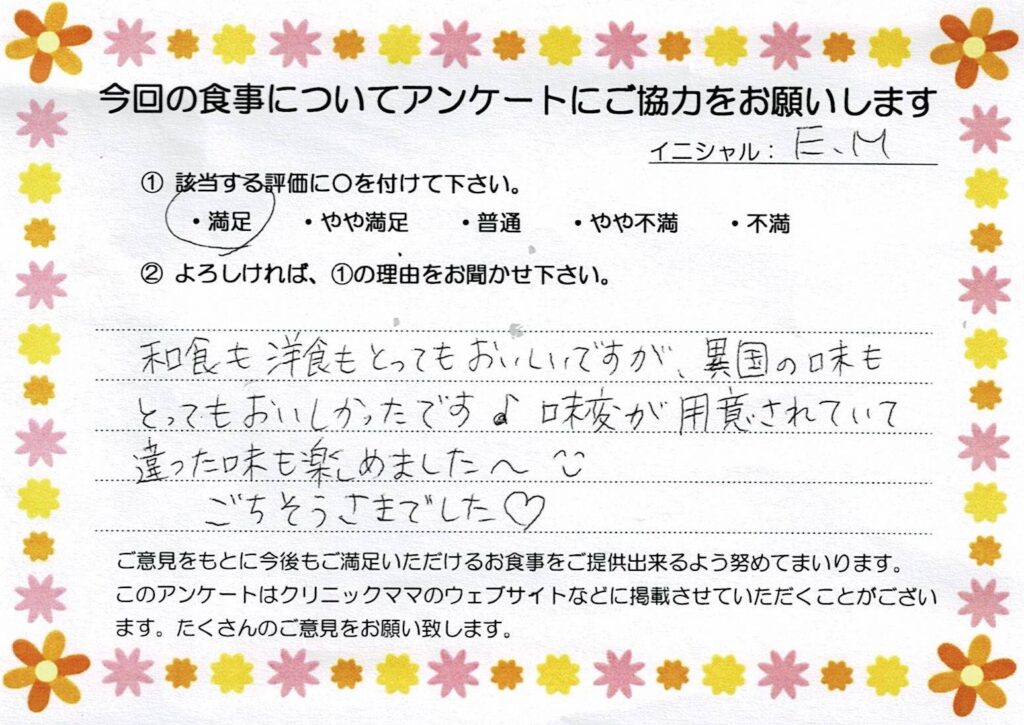 今回の食事についてアンケートにご協力をお願いします
イニシャル： E.M
① 該当する評価に〇を付けて下さい。
・満足 ・やや満足 ・普通 ・やや不満 ・不満
② よろしければ、①の理由をお聞かせ下さい。
和食も洋食もとってもおいしいですが、異国の味も
とってもおいしかったです♪ 味変が用意されていて
違った味も楽しめました〜
ごちそうさまでした♡
ご意見をもとに今後もご満足いただけるお食事をご提供出来るよう努めてまいります。
このアンケートはクリニックママのウェブサイトなどに掲載させていただくことがござい
ます。たくさんのご意見をお願い致します。